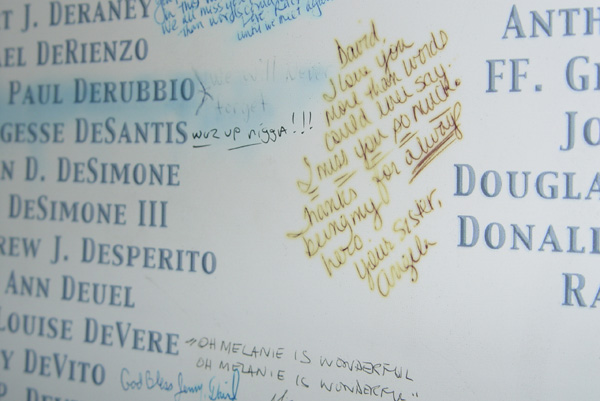 T J. DERANEY
we all miss you
than words
until we meet again
EL DERIENZO
PAUL DERUBBIO
We will never
forget
GESSE DESANTIS wuz up nigga!!!
N D. DESIMONE
DESIMONE III
REW J. DESPERITO
ANN DEUEL
LOUISE DEVERE
Y DEVITO
"OH MELANIE IS WONDERFUL
OH MELANIE IS WONDERFUL"
God Bless
David,
I love you
more than words
could ever say.
I miss you so much.
Thanks for always
being my
hero
your sister,
Angela
ANTH
FF. G
JO
DOUGLA
DONALD
RA